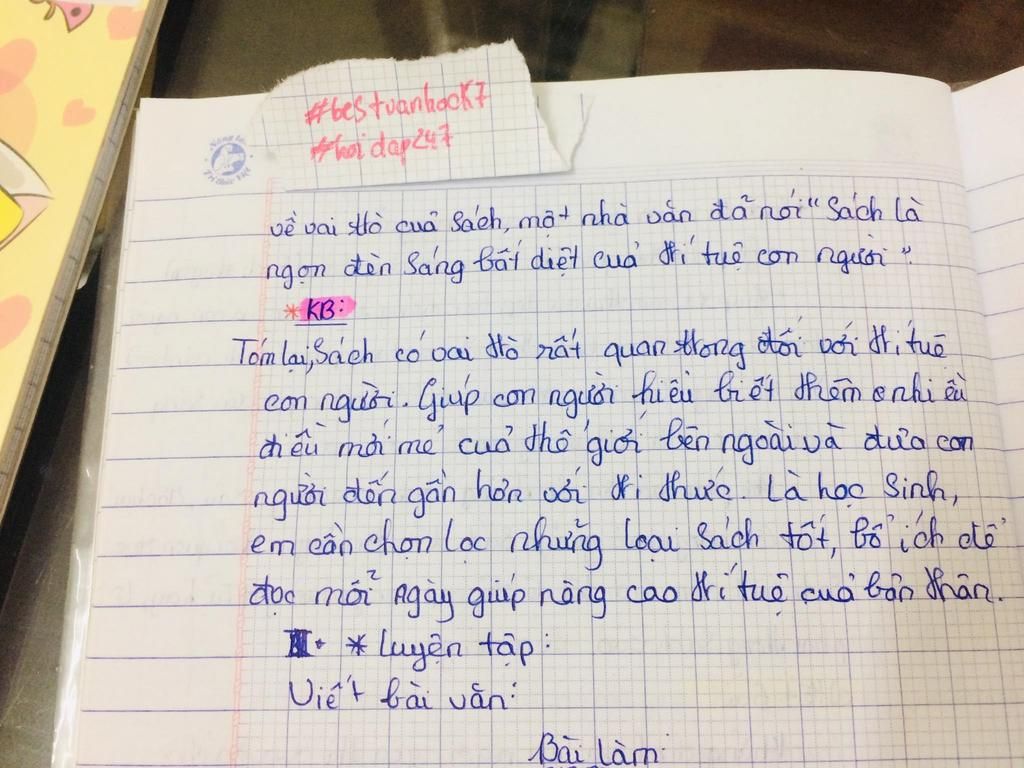 #bestvanhocK7
#hoidap247
Năng lực
Trí thức Việt
về vai trò cuả Sách, một nhà văn đã nói “Sách là
ngọn đèn sáng bất diệt cuả trí tuệ con người”.
* KB:
Tóm lại, Sách có vai trò rất quan trọng đối với trí tuệ
con người. Giúp con người hiểu biết thêm nhiều
điều mới mẻ cuả thế giới bên ngoài và đưa con
người đến gần hơn với tri thức. Là học Sinh,
em cần chọn lọc những loại sách tốt, bổ ích để
đọc mỗi ngày giúp nâng cao trí tuệ cuả bản thân.
* Luyện tập:
Viết bài văn:
Bài làm: